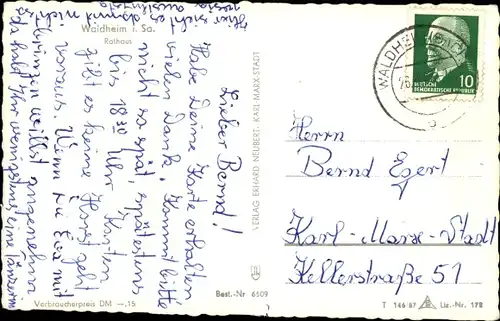 Waldheim i. Sa.
Rathaus
Lieber Bernd!
Habe Deine Karte erhalten
vielen Dank. Kommt bitte
nicht so spät, spätestens
bis 18 30 Uhr. Karten
gibt es keine, Horst geht
voraus. Wenn du Eva mit
bringen willst angenehm
da habt Ihr wenigstens eine Tänzerin
Verbraucherpreis DM —.15
Best.-Nr 6509
VERLAG ERHARD NEUBERT, KARL-MARX-STADT
WALDHEIM
DEUTSCHE
DEMOKRATISCHE REPUBLIK
10
Herrn
Bernd Egert
Karl-Marx-Stadt
Kellerstraße 51
T 146/67
Liz.-Nr. 178